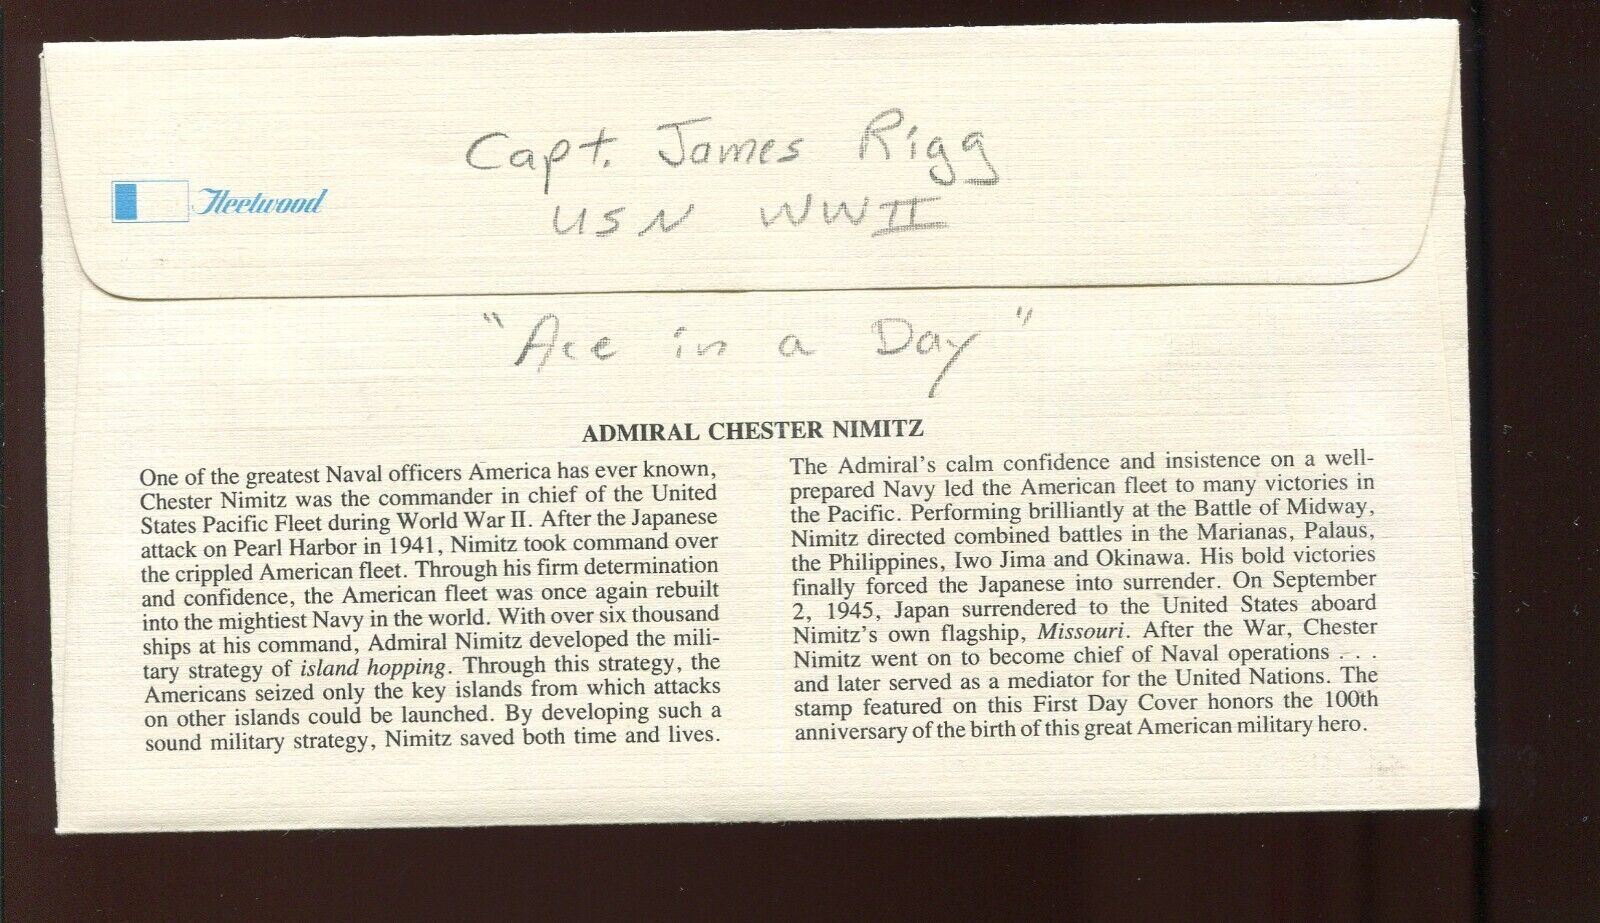 Capt. James Rigg
Fleetwood
USN WWII
"Ace in a Day"
ADMIRAL CHESTER NIMITZ
One of the greatest Naval officers America has ever known,
Chester Nimitz was the commander in chief of the United
States Pacific Fleet during World War II. After the Japanese
attack on Pearl Harbor in 1941, Nimitz took command over
the crippled American fleet. Through his firm determination
and confidence, the American fleet was once again rebuilt
into the mightiest Navy in the world. With over six thousand
ships at his command, Admiral Nimitz developed the mili-
tary strategy of island hopping. Through this strategy, the
Americans seized only the key islands from which attacks
on other islands could be launched. By developing such a
sound military strategy, Nimitz saved both time and lives.
The Admiral's calm confidence and insistence on a well-
prepared Navy led the American fleet to many victories in
the Pacific. Performing brilliantly at the Battle of Midway,
Nimitz directed combined battles in the Marianas, Palaus,
the Philippines, Iwo Jima and Okinawa. His bold victories
finally forced the Japanese into surrender. On September
2, 1945, Japan surrendered to the United States aboard
Nimitz's own flagship, Missouri. After the War, Chester
Nimitz went on to become chief of Naval operations . . .
and later served as a mediator for the United Nations. The
stamp featured on this First Day Cover honors the 100th
anniversary of the birth of this great American military hero.